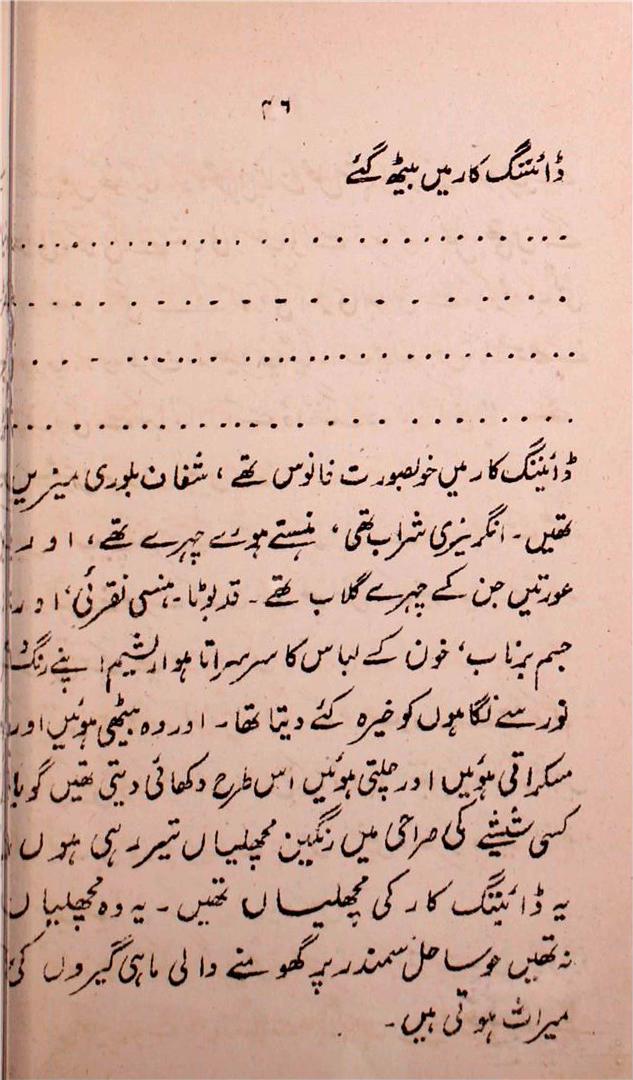 ۳۶
ڈائننگ کار میں بیٹھ گئے
. . . . . . . . . . . . . . . . . . . . . . . . . . . . . .
. . . . . . . . . . . . . . . . . . . .
. . . . . . . . . . . . . . . . . . . . . . . . . . . . . .
. . . . . . . . . . . . . . . . . . . . . . . . . . . . . .
ڈائیننگ کار میں خوبصورت فانوس تھے ، شفاف بلوری میزیں
تھیں ۔ انگریزی شراب تھی ، ہنستے ہوئے چہرے تھے ، اور
عورتیں جن کے چہرے گلاب تھے ۔ قد بوٹا ۔ ہنسی نقرئی ، اور
جسم برناب ، خون کے لباس کا سرسراتا ہوا ریشیم اپنے رنگ
نور سے نگاہوں کو خیرہ کئے دیتا تھا ۔ اور وہ بیٹھی ہوئیں اور
مسکراتی ہوئیں اور چلتی ہوئیں اس طرح دکھائی دیتی تھیں گویا
کسی شیشے کی صراحی میں رنگین مچھلیاں تیر رہی ہوں
یہ ڈائیننگ کار کی مچھلیاں تھیں ۔ یہ وہ مچھلیاں
نہ تھیں جو ساحل سمندر پر گھومنے والی ماہی گیروں کی
میراث ہوتی ہیں ۔